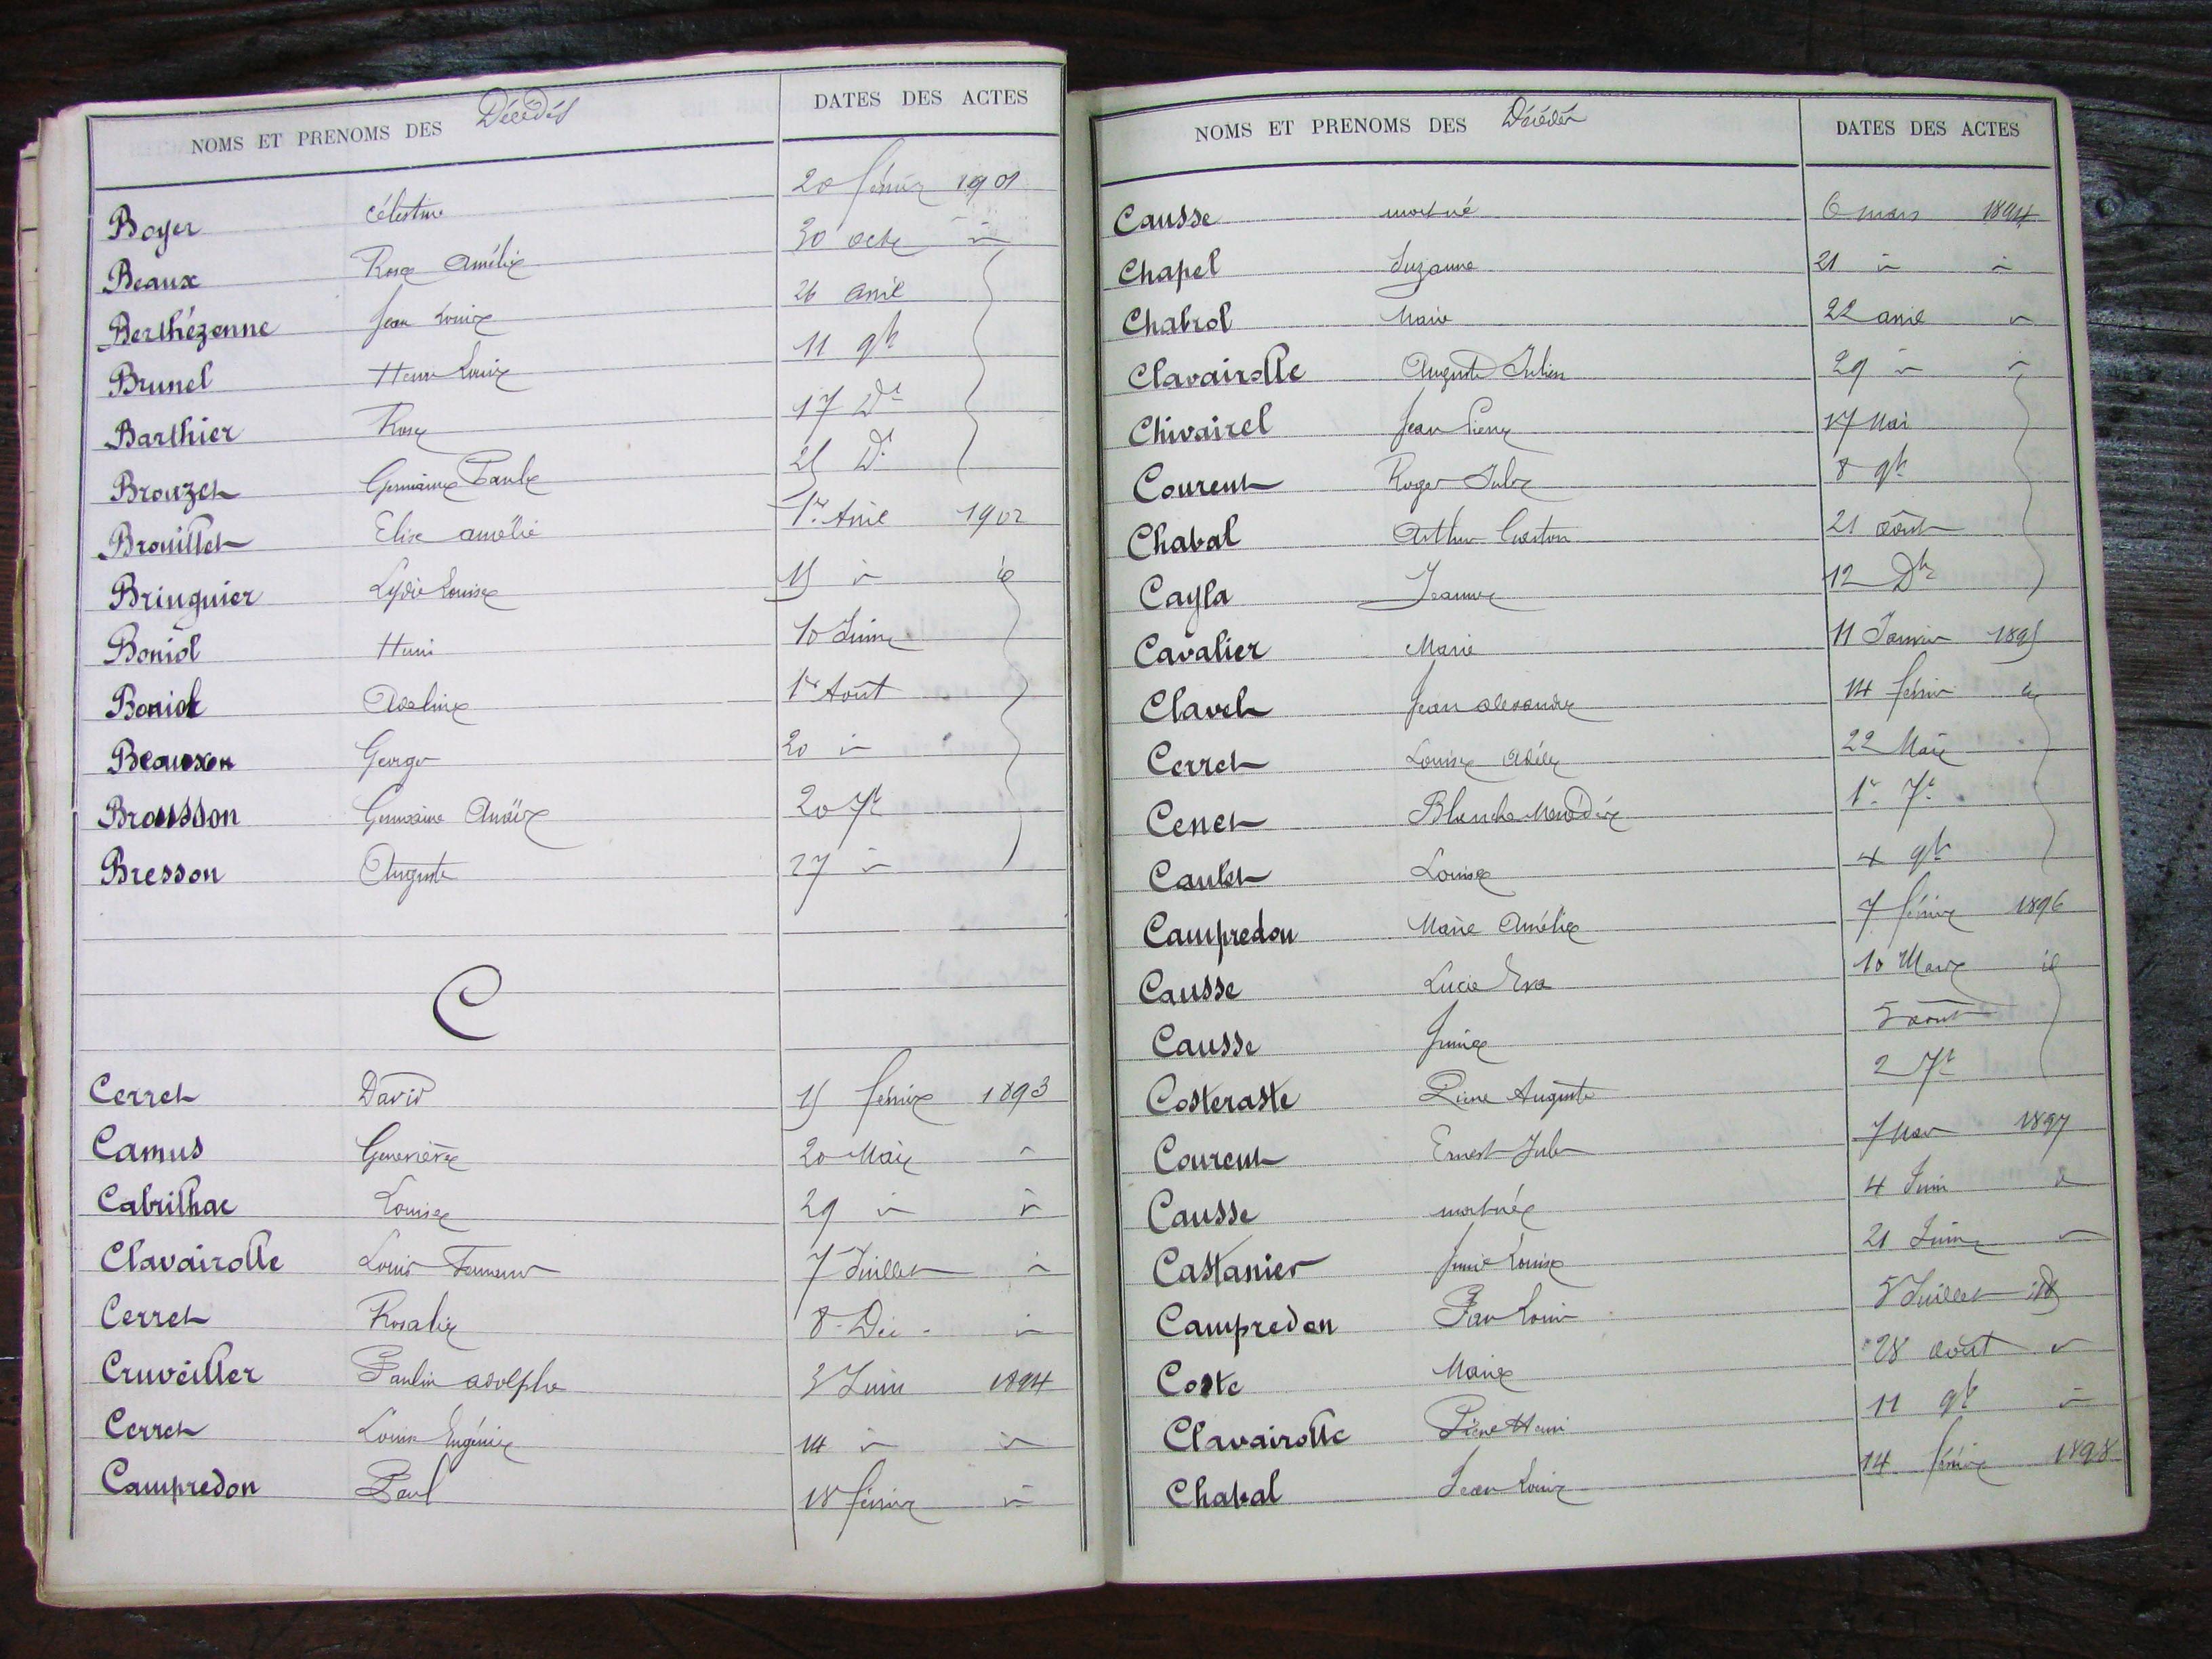 NOMS ET PRENOMS DES Décédés DATES DES ACTES
Boyer Célestine 20 février 1901
Beaux Rose Amélie 30 octe "
Berthézenne Jean Louis 26 avril
Brunel Henri Louis 11 9bre
Barthier Rose 17 Dre
Brouzet Germaine Paule 25 Dre
Brouillet Elise Amélie 1er Avril 1902
Bringuier Lydie Louise 15 " id
Boniol Henri 10 Juin
Boniol Adeline 1er Août
Beauxon George 20 "
Brousson Germaine Anaïs 20 7bre
Bresson Auguste 27 "
C
Cerret David 15 février 1893
Camus Geneviève 20 Mars "
Cabrilhac Louise 29 " "
Clavairolle Louis Fernand 7 Juillet "
Cerret Rosalie 8 Déc. "
Cruveiller Paulin Adolphe 3 Juin 1894
Cerret Louise Eugénie 14 " "
Campredon Paul 18 février "
NOMS ET PRENOMS DES Décédés DATES DES ACTES
Causse mort né 6 mars 1894
Chapel Suzanne 21 " "
Chabrol Marie 22 avril "
Clavairolle Auguste Julien 29 " "
Chivairel Jean Pierre 17 Mai
Courent Roger Jules 8 9bre
Chabal Arthur Gaston 21 août
Cayla Jeanne 12 Dbre
Cavalier Marie 11 Janvier 1895
Clavel Jean Alexandre 14 février id
Cerret Louise Adèle 22 Mars
Cenet Blanche 1er 7bre
Caulet Louise 4 9bre
Campredon Marie Amélie 7 février 1896
Causse Lucie Eva 10 Mars id
Causse 5 août
Costeraste Pierre Auguste 2 7bre
Courent Ernest Jules 7 Mars 1897
Causse mort née 4 Juin id
Castanier Louise 21 Juin "
Campredon Louis 5 Juillet id
Coste Marie 28 août "
Clavairolle Pierre Henri 11 9bre "
Chabal Jean Louis 14 février 1898